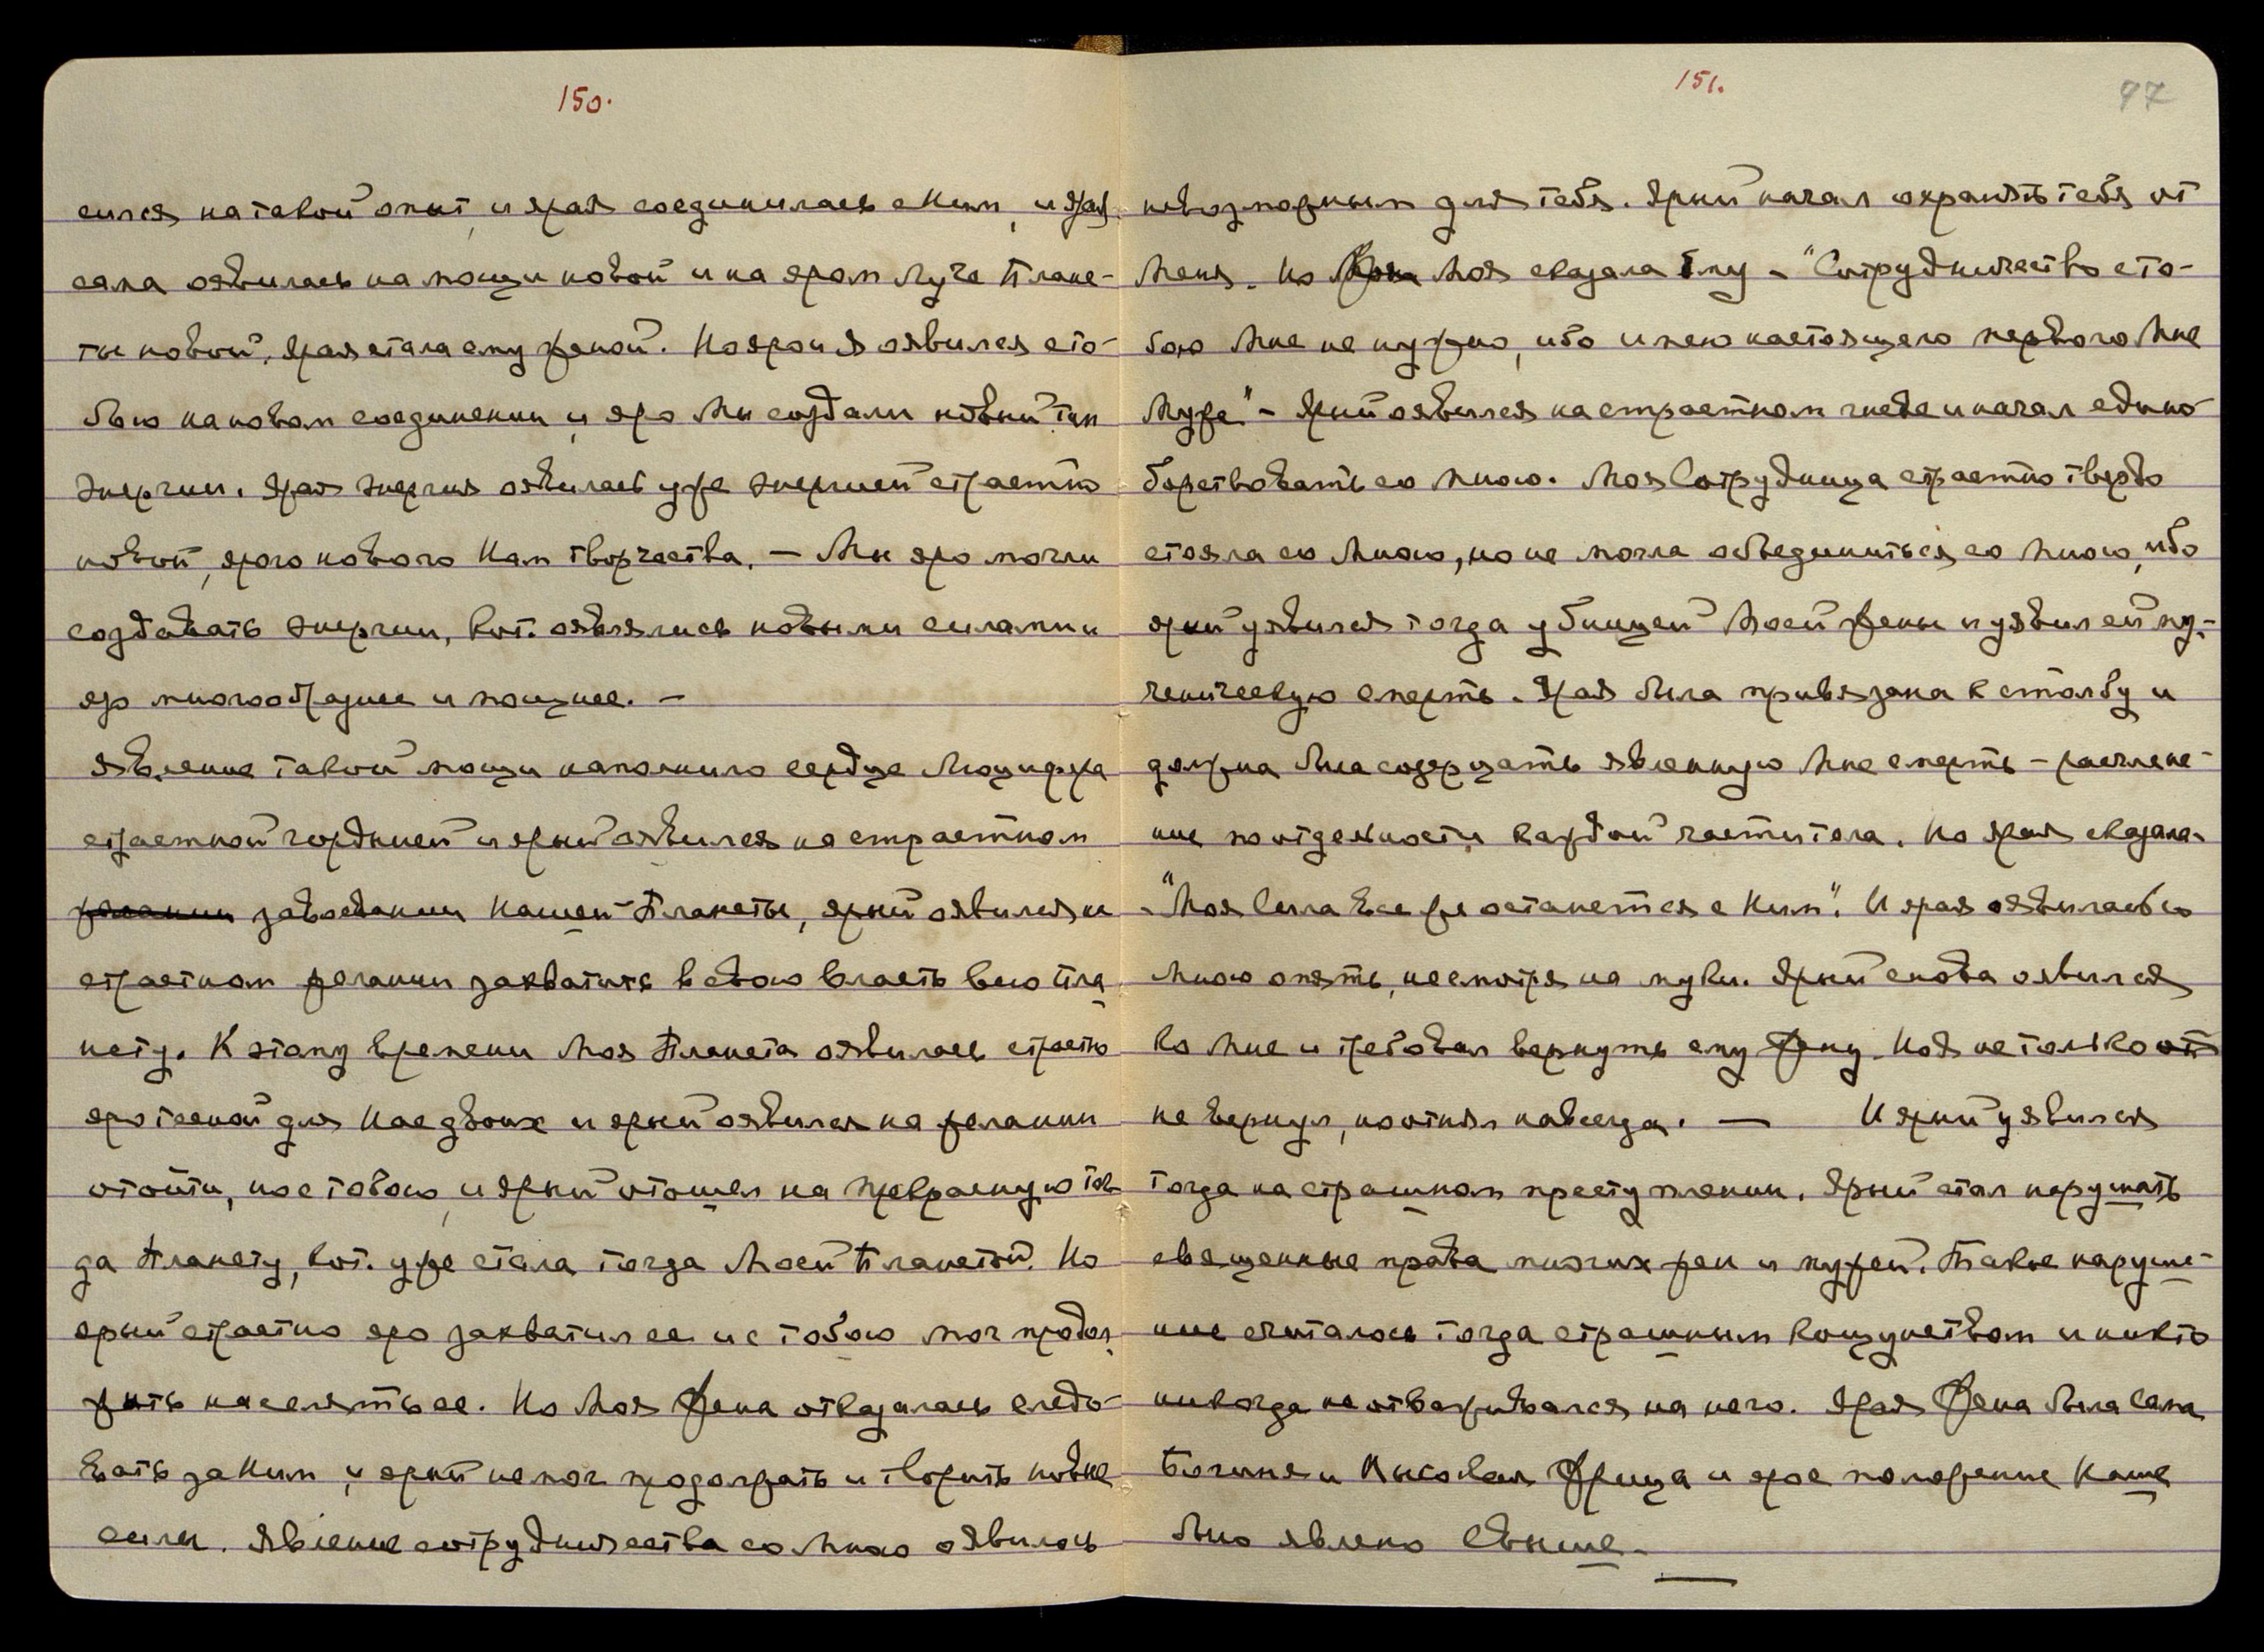 150.
сился на такой опыт, и ярая соединилась с Ним, и ярая
сама оявилась на мощи новой и на яром Луче Плане-
ты новой, ярая стала ему женой. Но яро и Я оявился с то-
бою на новом соединении, и яро Мы создали новый тип
энергии. Ярая энергия оявилась уже энергией страстно
новой, ярого нового Нам творчества. — Мы яро могли
создавать энергии, кот. оявлялись новыми силами и
яро многообразнее и мощнее. —
Явление такой мощи наполнило сердце Люцифера
страстной гордыней и ярый оявился на страстном
желании завоевании Нашей Планеты, ярый оявился на
страстном желании захватить в свою власть всю Пла-
нету. К этому времени Моя Планета оявилась страстно
яро тесной для Нас двоих и ярый оявился на желании
отойти, но с тобою, и ярый отошел на прекрасную тог-
да Планету, кот. уже стала тогда Моей Планетой. Но
ярый страстно яро захватил ее и с тобою мог продол-
жить населять ее. Но Моя Жена отказалась следо-
вать за Ним, и ярый не мог продолжать и творить новые
силы. Явление сотрудничества со Мною оявилось
151.
97
невозможным для тебя. Ярый начал охранять тебя от
Меня. Но Моя сказала Ему – "Сотрудничество с то-
бою Мне не нужно, ибо имею настоящего первого Мне
Мужа" – Ярый оявился на страстном гневе и начал едино-
борствовать со Мною. Моя Сотрудница страстно твердо
стояла со Мною, но не могла объединиться со Мною, ибо
ярый уявился тогда убийцей Моей Жены и уявил ей му-
ченическую смерть. Ярая была привязана к столбу и
должна была созерцать явленную Мне смерть – расчлене-
ние по отдельности каждой части тела. Но ярая сказала –
– "Моя Сила все же останется с Ним". И ярая оявилась со
Мною опять, несмотря на муки. Ярый снова оявился
ко Мне и требовал вернуть ему Жену. Но Я не только
не вернул, но отнял навсегда. — И ярый уявился
тогда на страшном преступлении. Ярый стал нарушать
священные права многих жен и мужей. Такое наруше-
ние считалось тогда страшным кощунством и никто
никогда не отваживался на него. Ярая Жена была Сама
Богиня и Высокая Жрица и ярое положение Наше
было явлено Свыше. —